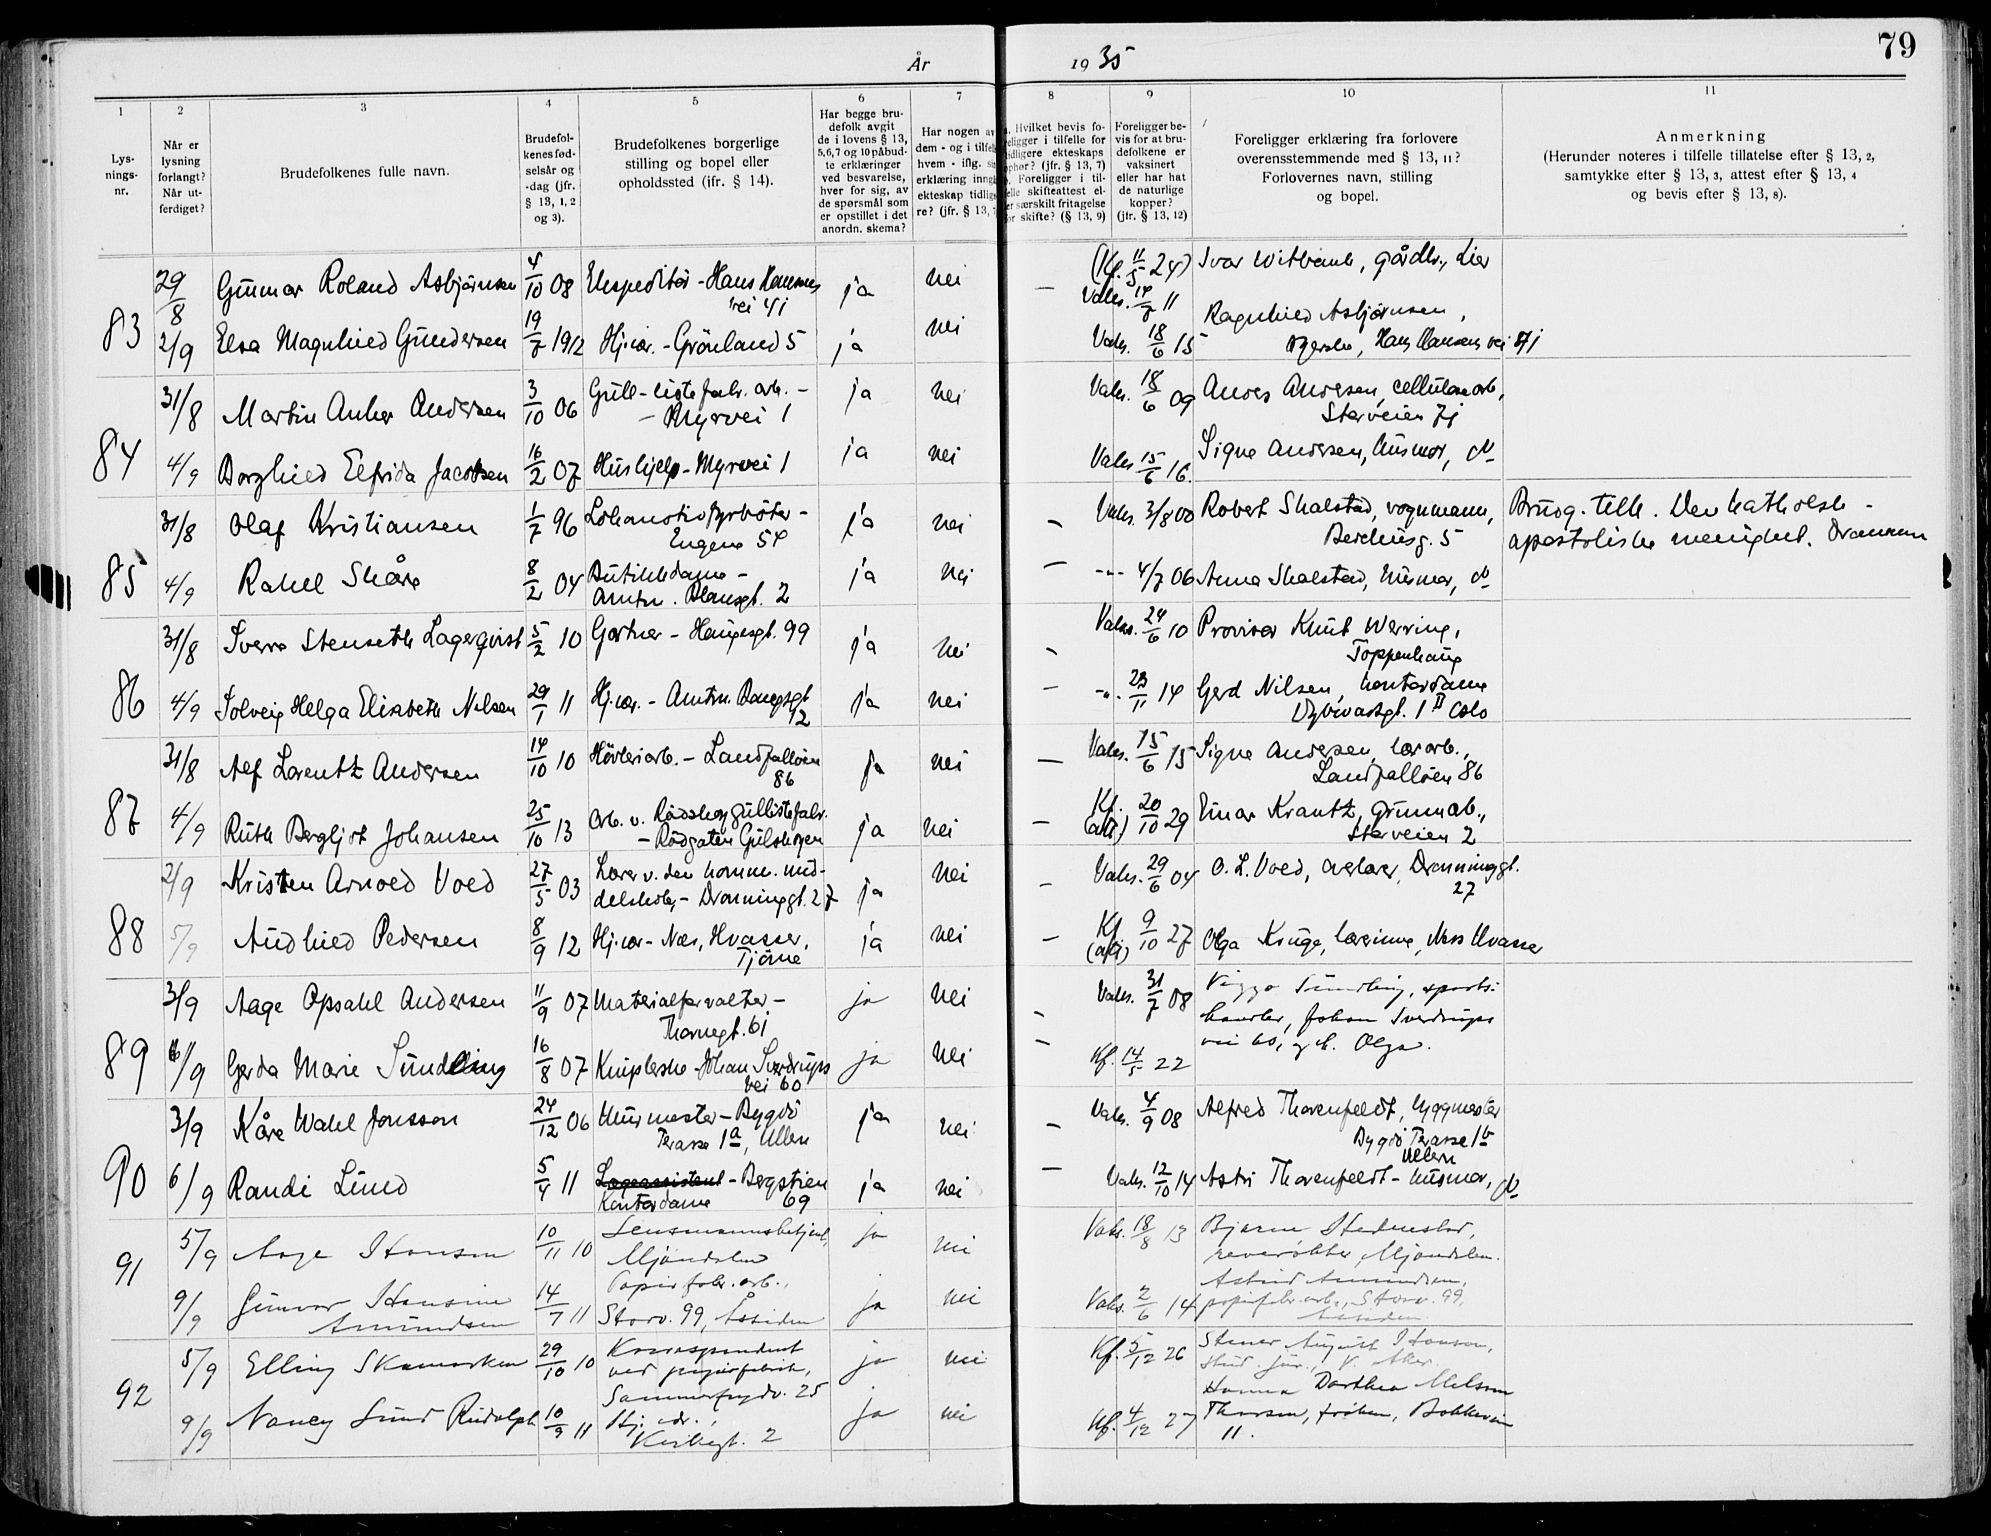 År 1935
79
1
2
3
4
5
6
7
8
9
10
11
Lys-
nings-
nr.
Når er
lysning
forlangt?
Når ut-
ferdiget?
Brudefolkenes fulle navn.
Brudefol-
kenes fød-
selsår og
-dag (jfr.
§ 13, 1, 2
og 3).
Brudefolkenes borgerlige
stilling og bopel eller
opholdssted (ifr. § 14).
Har begge bru-
defolk avgit
de i lovens § 13,
5,6,7 og 10 påbud-
te erklæringer
ved besvarelse,
hver for sig, av
de spørsmål som
er opstillet i det
anordn. skema?
Har nogen av
dem - og i tilfelle
hvem - iflg.
erklæring inng
ekteskap tidlig
re? (jfr. § 13,
Hvilket bevis fo-
religger i tilfelle for
tidligere ekteskaps
ophør? (jfr. § 13, 7)
Foreligger i til-
felle skifteattest el-
er særskilt fritagelse
or skifte? (§ 13, 9)
Foreligger be-
vis for at bru-
defolkene er
vaksinert
eller har hat
de naturlige
kopper?
(jfr. § 13, 12)
Foreligger erklæring fra forlovere
overensstemmende med § 13, 11?
Forlovernes navn, stilling
og bopel.
Anmerkning
(Herunder noteres i tilfelle tillatelse efter § 13, 2,
samtykke efter § 13, 3, attest efter § 13, 4
og bevis efter § 13, 8).
83
29/8 Gunnar Roland Asbjørnsen 4/10 08 Ekspeditør - Hans Hansens vei 41 ja nei — (Kf. 11/5 24) Vaks. 14/7 11 Ivar Witbank, gårdbr., Lier
2/9 Elsa Magnhild Gundersen 19/7 1912 Hj.vær. - Grönland 5 ja nei Vaks. 18/6 15 Ragnhild Asbjørnsen,
Hans Hansens vei 41
84
31/8 Martin Anker Andersen 3/10 06 Gull-listefabr. arb. -
- Myrvei 1 ja nei Vaks. 18/6 09 Anders Andersen, cellulosearb,
Storveien 71
4/9 Borghild Elfrida Jacobsen 16/2 07 Hushjelp - Myrvei 1 ja nei Vaks 15/6 16. Signe Andersen, husmor, do
85
31/8 Olaf Kristiansen 1/7 96 Lokomotivfyrbøter -
Engene 54 ja nei — Vaks. 3/8 00 Robert Skalstad, vognmann,
5 Brudg. tilh. Den katholsk-
apostoliske menighet. Drammen
4/9 Rakel Skåre 8/2 04 Butikkdame -
Amtm. Blomsgt. 2 ja nei — -"- 4/7 06 Anna Skalstad, husmor, do
86
31/8 Sverre Stenseth Lagerqvist 5/2 10 Gartner - Haugesgt. 99 ja nei — Vaks. 24/6 10 Provisor Knut Werring,
Toppenhaug
4/9 Solveig Helga Elisabeth Nilsen 29/1 11 Hj.vær. - Amtm. Blomsgt
12 ja nei — -"- 23/11 14 Gerd Nilsen, kontordame
Dybwadsgt. 1 II Oslo
87
31/8 Alf Lorentz Andersen 14/10 10 Høvleriarb. - Landfalløen
86 ja nei — Vaks. 15/6 15 Signe Andersen, lærarb.,
Landfalløen 86
4/9 Ruth Bergljot Johansen 25/10 13 Arb. v. Rødskog gullistefabr.
- Rødgaten Gulskogen ja nei — Kf. 20/10 29
(att) Einar Krantz, grunnarb.,
Storveien 2
88
2/9 Kristen Arnold Voed 27/5 03 Lærer v. den komm. mid-
delskole, - Dronninggt. 27 ja nei — Vaks. 29/6 04 O. L. Voed, overlærer, Dronninggt.
27
5/9 Audhild Pedersen 8/9 12 Hj.vær - Nes, Hvasser,
Tjøme ja nei — Kf 9/10 27
(att) Olga Kruge, lærerinne, Nes Hvasser
89
3/9 Aage Opsahl Andersen 11/9 07 Materialforvalter -
Thornegt. 61 ja nei — Vaks. 31/7 08 Viggo Sundling, sports-
handler, Johan Sverdrups
vei 60, g.b. Olga.
6/9 Gerda Marie Sundling 16/8 07 Kniplerske - Johan Sverdrups
vei 60 ja nei — Kf. 14/5 22
90
3/9 Kåre Wahl Jonsson 24/12 06 Murmester - Bygdö
Terasse 1a, Ullern ja nei — Vaks. 4/9 08 Alfred Thorenfeldt, byggmester
Bygdö Terasse 1b
Ullern
6/9 Randi Lund 5/4 11 Lagerassistent - Bergstien
Kontordame 69 ja nei — Vaks. 12/10 14 Astri Thorenfeldt - husmor, do
91
5/9 Aage Hansen 10/11 10 Lensmannsbetjent,
Mjøndalen ja nei Vaks. 18/8 13 Bjarne Stedenstad,
Mjøndalen.
9/9 Gunvor Hansine
Amundsen 14/7 11 Papirfabr. arb.,
Storv. 99, Åssiden ja nei Vaks. 2/6 14 Astrid Amundsen,
papirfabr. arb., Storv. 99,
Åssiden
92
5/9 Elling Skamarken 29/10 10 Korrespondent
ved papirfabrikk,
Sommerfrydv. 25 ja nei Kf. 5/12 26 Stener August Hansen,
stud. jur., V. Aker.
9/9 Nancy Lund Rudolph 10/9 11 Hj. vær.,
Kirkegt. 2 ja nei Kf. 4/12 27 Hanna Dorthea Nilsson
Thorsen, frøken, Bakkevein
11.